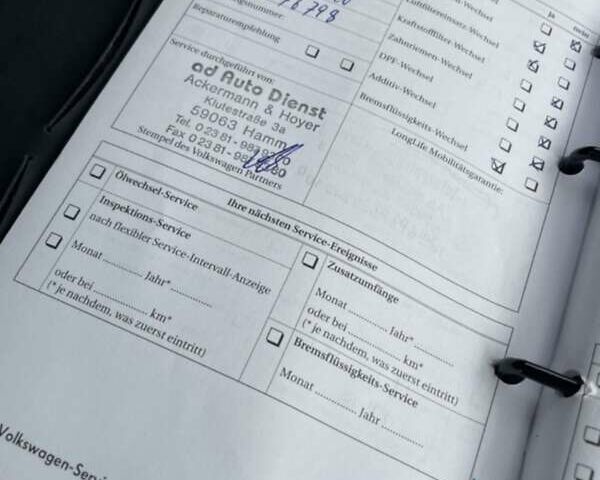 76798
Reparaturempfehlung
Service durchgeführt von:
ad Auto Dienst
Ackermann & Hoyer
Klutestraße 3a
59063 Hamm
Tel. 0 23 81 -
Fax 0 23 81 -
Stempel des Volkswagen Partners
ja
nein
Luftfiltereinsatz-Wechsel
Kraftstofffilter-Wechsel
Zahnriemen-Wechsel
DPF-Wechsel
Additiv-Wechsel
Bremsflüssigkeits-Wechsel
LongLife Mobilitätsgarantie:
Ihre nächsten Service-Ereignisse
Ölwechsel-Service
Inspektions-Service
nach flexibler Service-Intervall-Anzeige
Monat ............ Jahr* ............
oder bei ............ km*
(* je nachdem, was zuerst eintritt)
Zusatzumfänge
Monat ............ Jahr* ............
oder bei ............ km*
(* je nachdem, was zuerst eintritt)
Bremsflüssigkeits-Service
Monat ............ Jahr ............